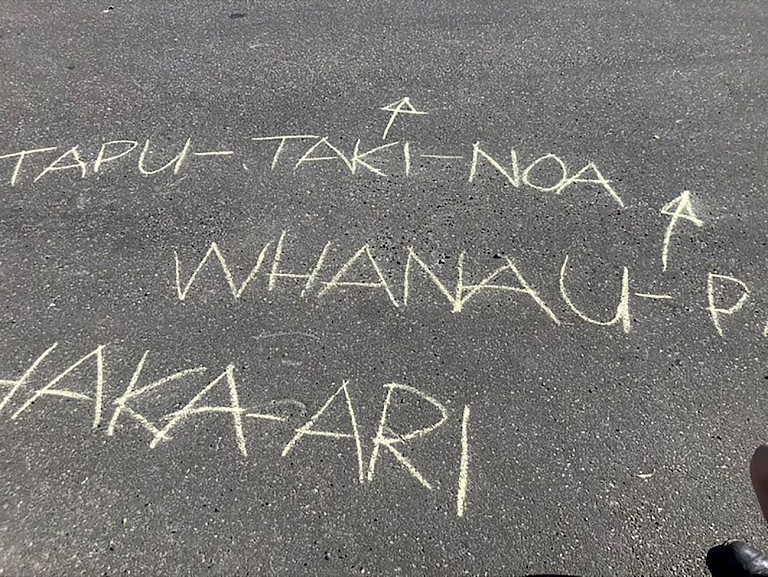 TAPU-TAKI-NOA
WHANAU-P
HAKA-ARI